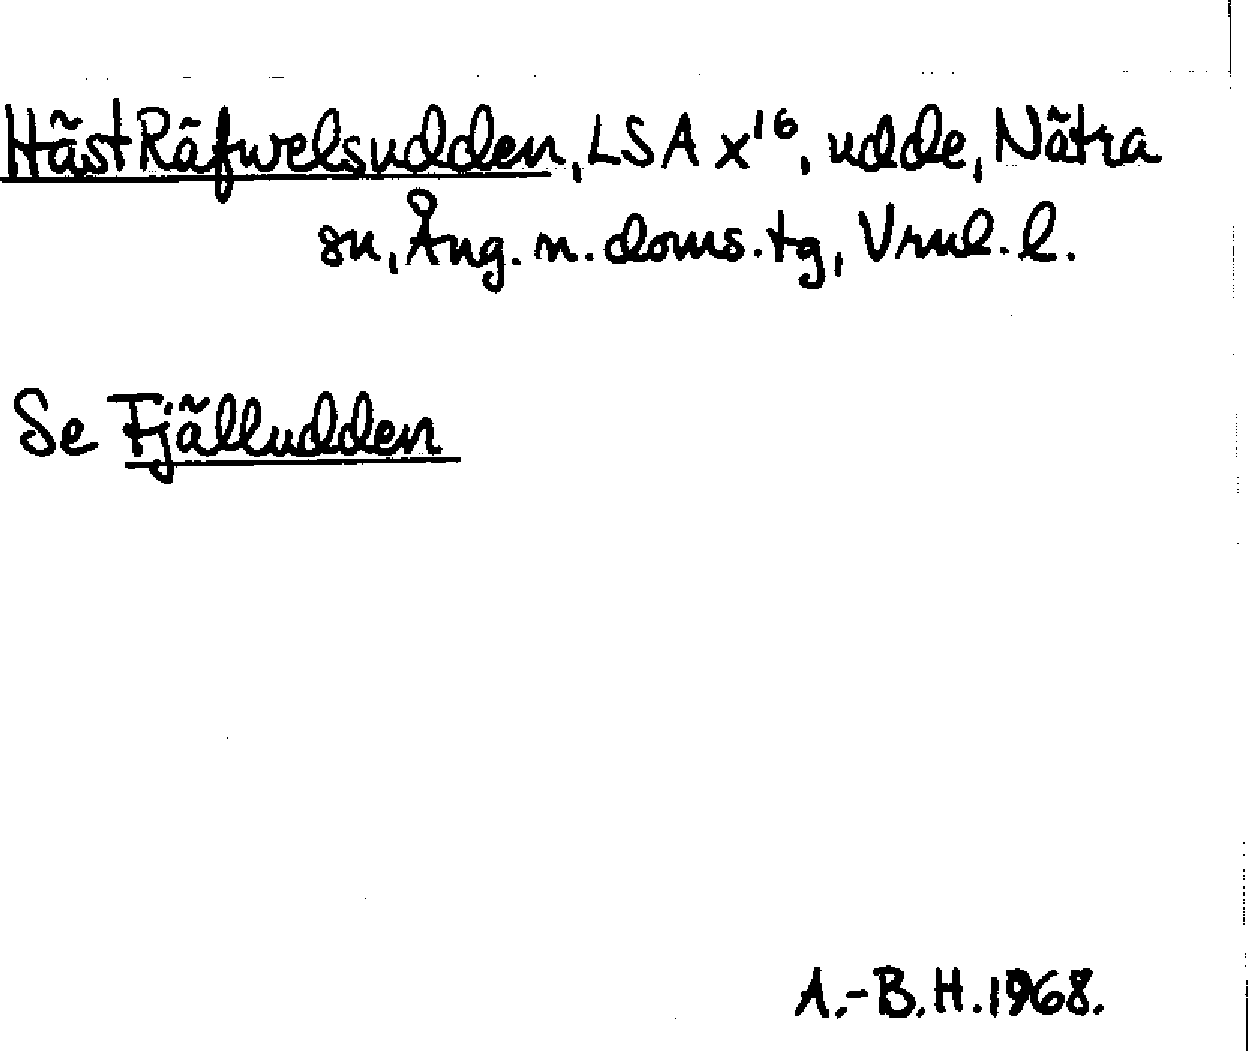 HästRäfwelsudden, LSA x¹⁶, udde, Nätra
sn, Ång. n. doms.tg, Vrnl. l.
Se Fjälludden
A.-B.H.1968.